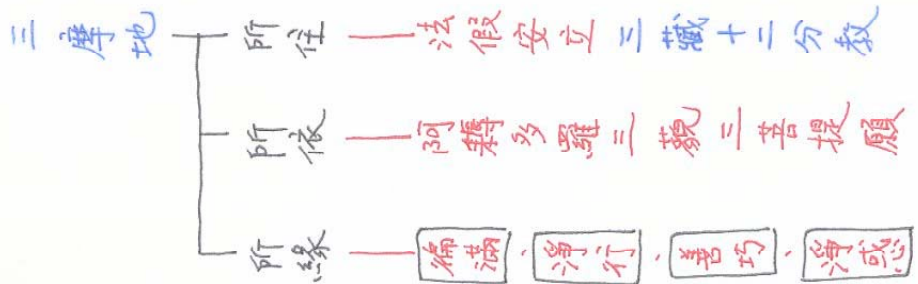 三摩地 所住 法假安立 三藏十二分教
所依 阿耨多羅三藐三菩提願
所緣 徧滿、淨行、善巧、淨惑